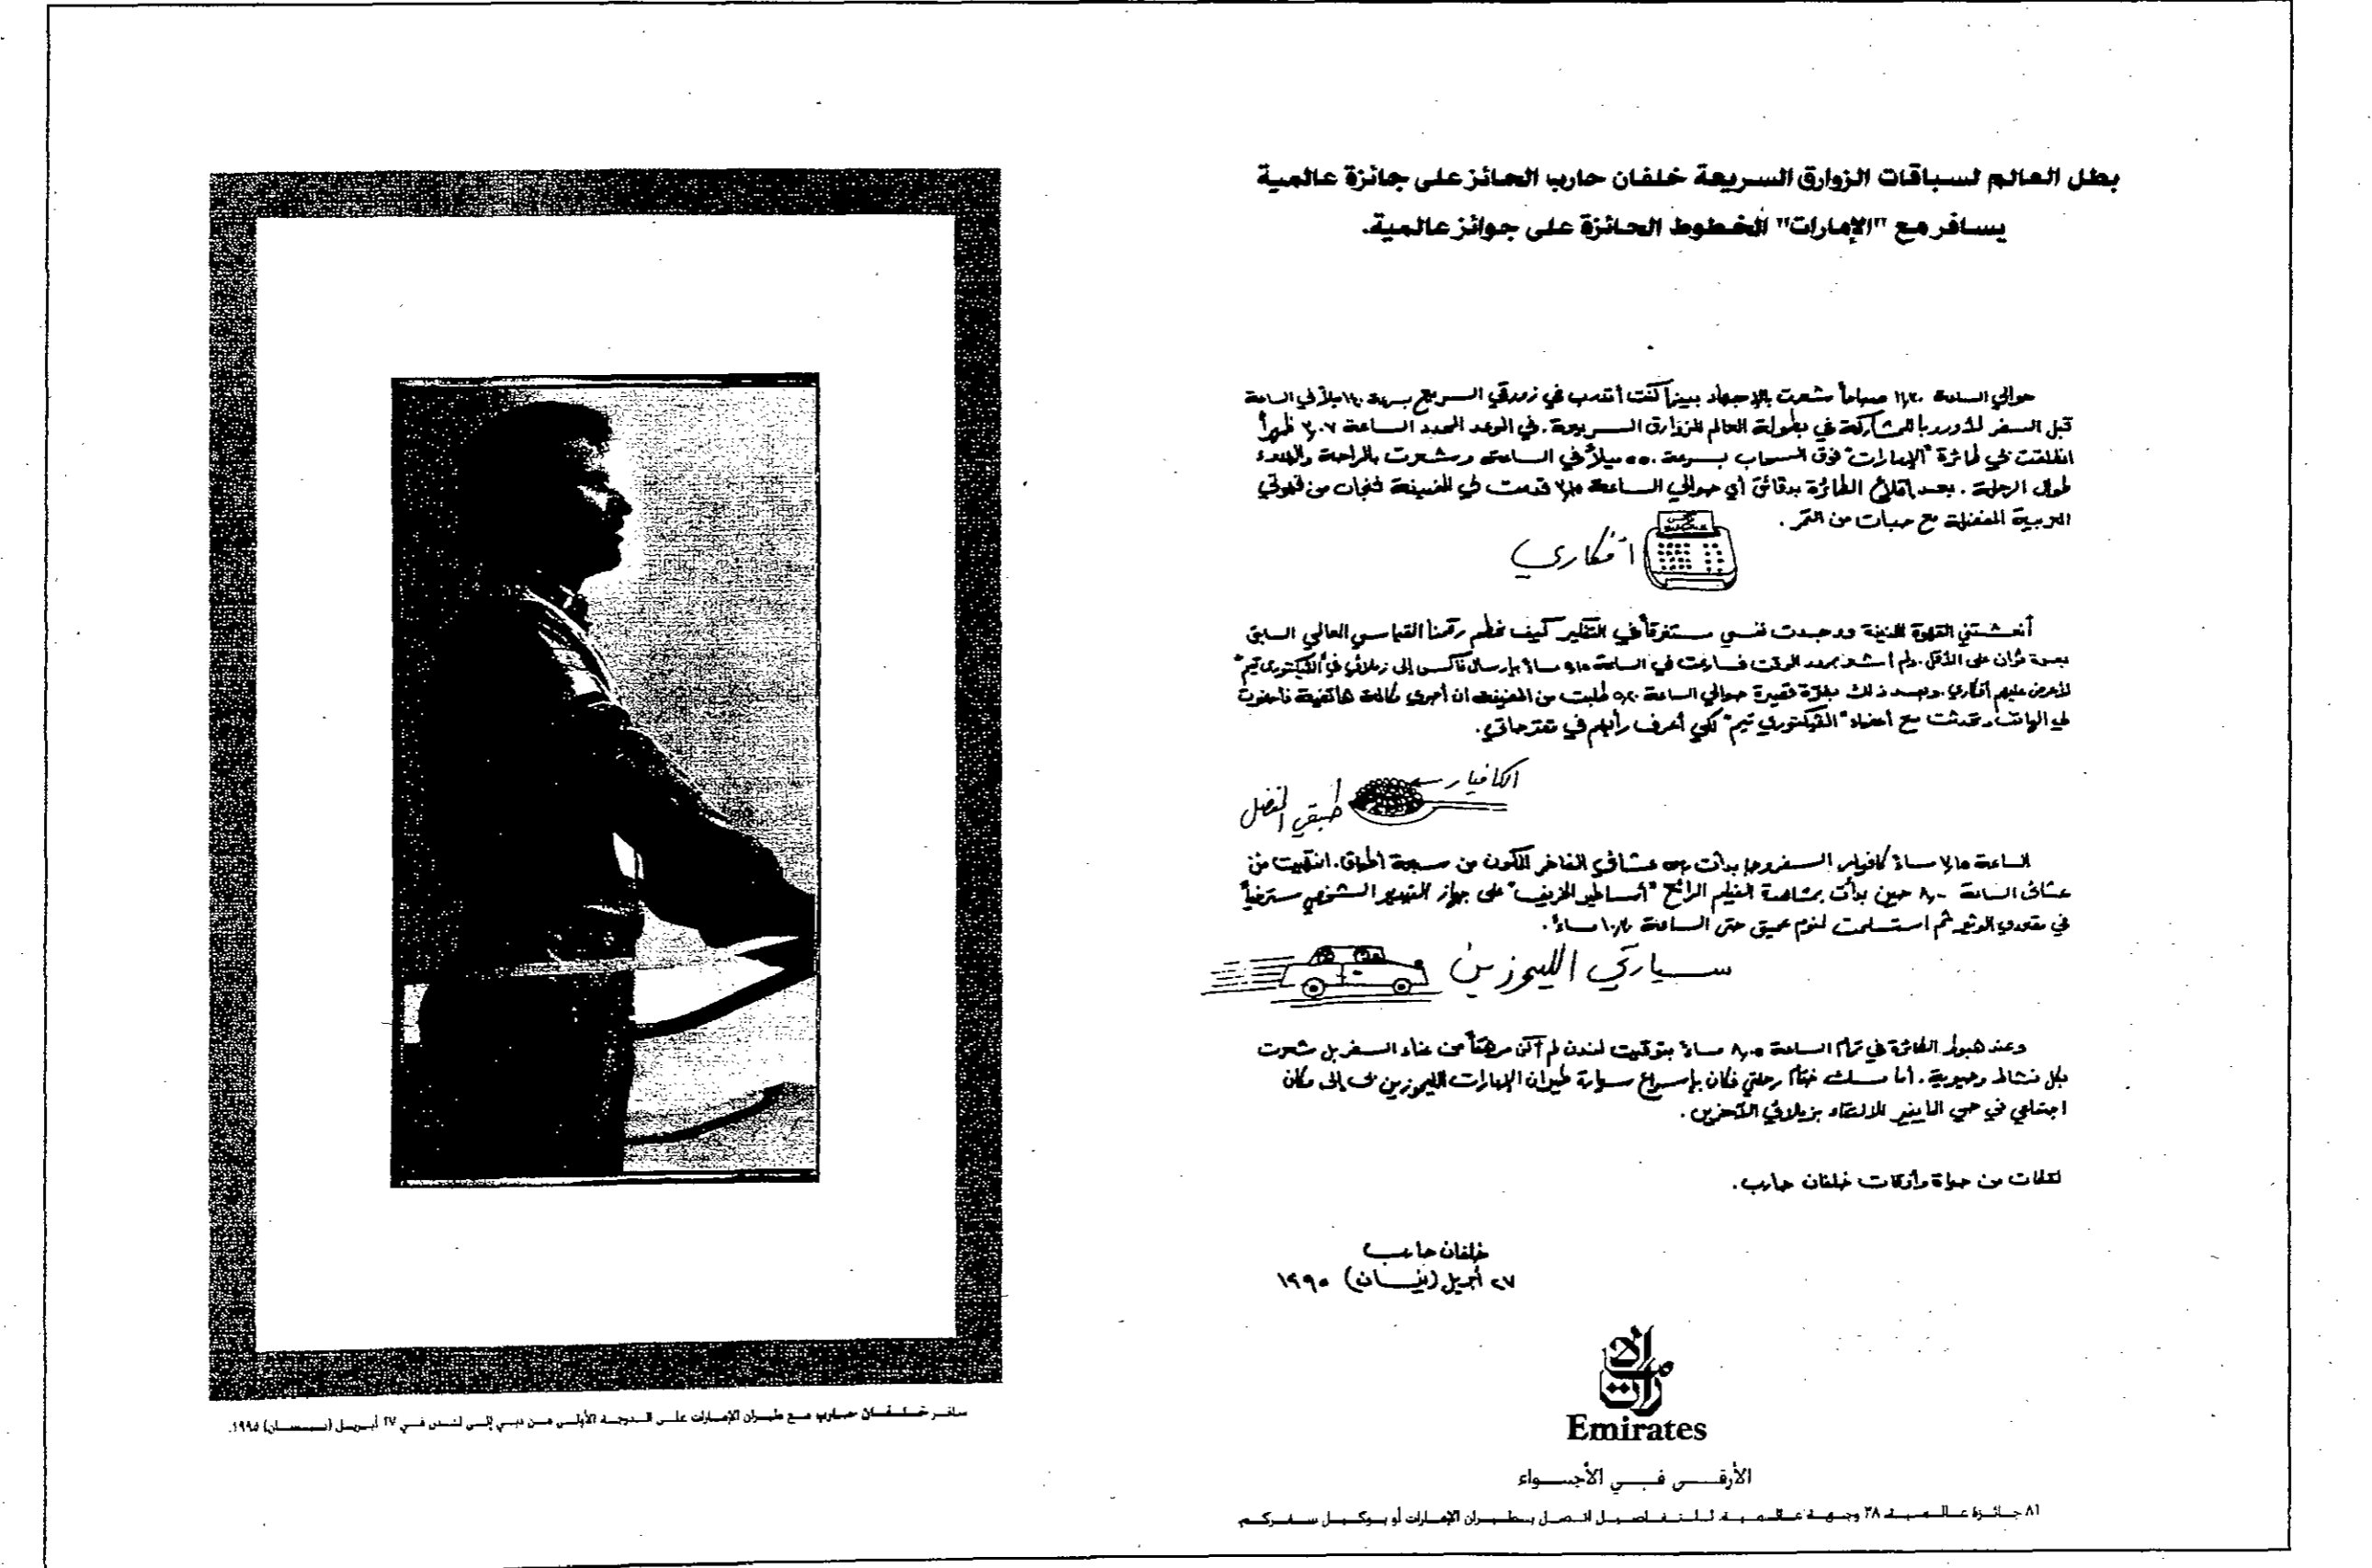 بطل العالم لسباقات الزوارق السريعة خلفان حارب الحائز على جائزة عالمية
يسافر مع "الإمارات" الخطوط الحائزة على جوائز عالمية.
حوالي الساعة صباحاً شعرت بالإجهاد بينما كنت أتدرب في زورقي السريع بسرعة ميلاً في الساعة
قبل السفر لأوروبا للمشاركة في بطولة العالم للزوارق السريعة. في الموعد المحدد الساعة ظهراً
انطلقت في طائرة "الإمارات" فوق السحاب بسرعة ٥٥٠ ميلاً في الساعة وشعرت بالراحة والهدوء
طوال الرحلة. بعد إقلاع الطائرة بدقائق أي حوالي الساعة قدمت لي المضيفة فنجان من قهوتي
العربية المفضلة مع حبات من التمر.
أفكاري
أنعشتني القهوة اللذيذة ووجدت نفسي مستغرقاً في التفكير كيف نحطم رقمنا القياسي العالمي السابق
ثوان على الأقل. ولم أشعر بمرور الوقت فسارعت في الساعة مساءً بإرسال فاكس إلى زملائي في "الفيكتوري تيم"
لأعرض عليهم أفكاري. وبعد ذلك بفترة قصيرة حوالي الساعة طلبت من المضيفة أن أجري مكالمة هاتفية فأحضرت
لي الهاتف وتحدثت مع أعضاء "الفيكتوري تيم" لكي أعرف رأيهم في مقترحاتي.
الكافيار
طبقي المفضل
الساعة مساءً كافيار السفروجا بدأت به عشائي الفاخر المكون من سبعة أطباق. انتهيت من
عشائي الساعة حين بدأت بمشاهدة الفيلم الرائع "أساطير الخريف" على جهاز الفيديو الشخصي مسترخياً
في مقعدي الوثير ثم استسلمت لنوم عميق حتى الساعة مساءً.
سيارتي الليموزين
وعند هبوط الطائرة في تمام الساعة مساءً بتوقيت لندن لم أكن مرهقاً من عناء السفر بل شعرت
بكل نشاط وحيوية. أما مسك ختام رحلتي فكان بإسراع سيارة طيران الإمارات الليموزين بي إلى مكان
اجتماعي في حي الماينير للالتقاء بزملائي الآخرين.
لقطات من حياة وأوقات خلفان حارب.
خلفان حارب
٢٧ أبريل (نيسان) ١٩٩٥
Emirates
الأرقى في الأجواء
٨١ جائزة عالمية. ٣٨ وجهة عالمية. للتفاصيل اتصل بطيران الإمارات أو بوكيل سفركم.
سافر خلفان حارب مع طيران الإمارات على الدرجة الأولى من دبي إلى لندن في ٢٧ أبريل (نيسان) ١٩٩٥.